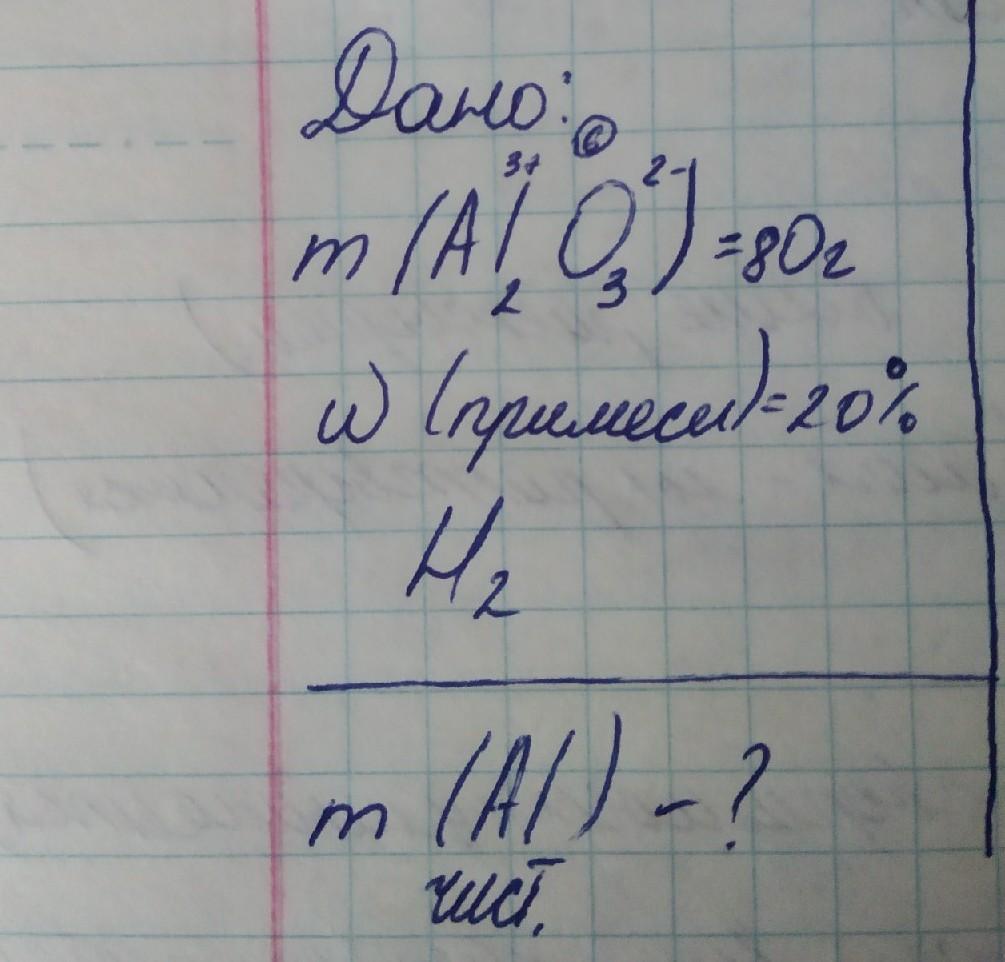 Дано:
6
3+ 2-
m (Al2O3) = 80г
w (примеси) = 20%
H2
m (Al) - ?
чист.